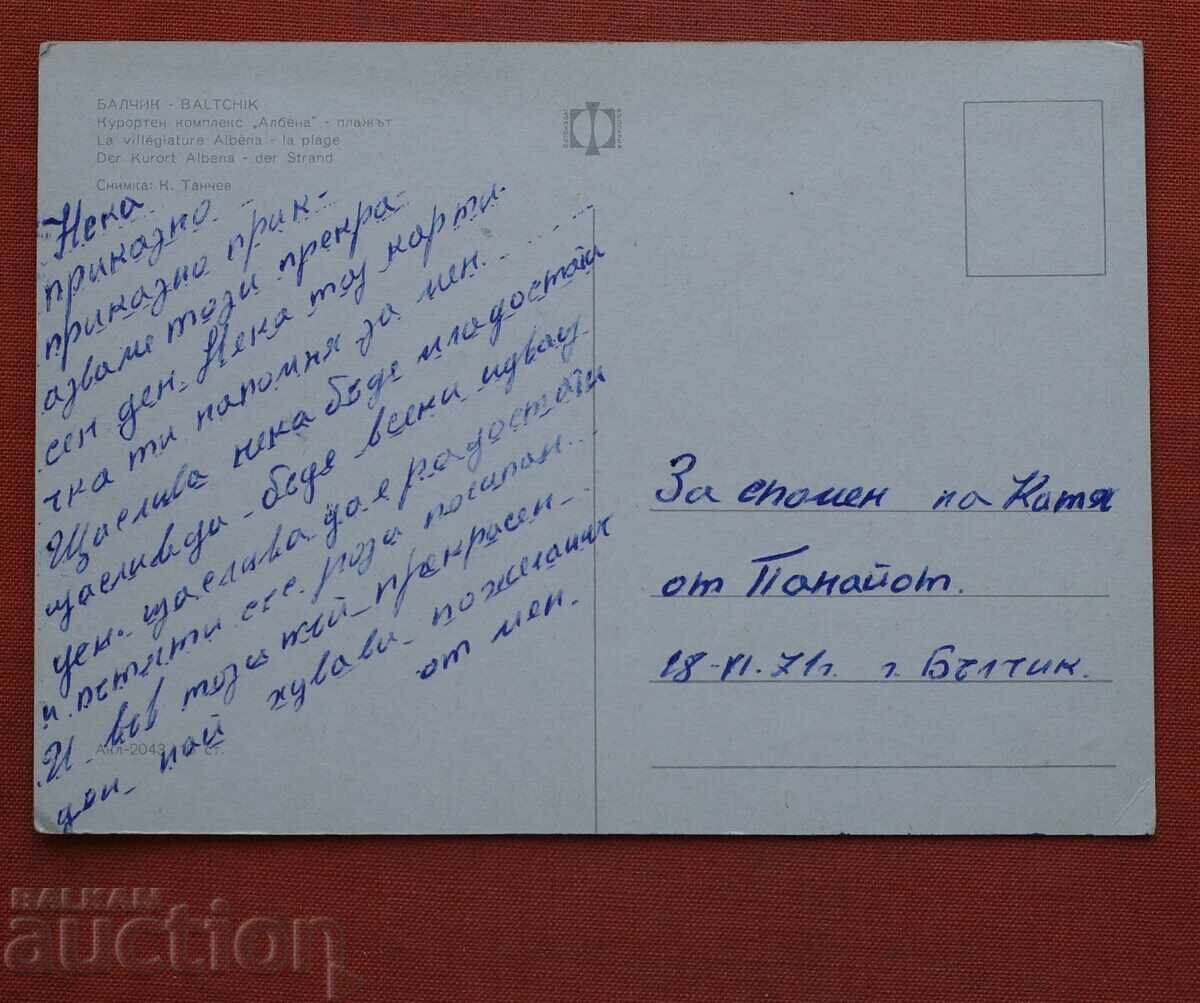 БАЛЧИК - BALTCHIK
Курортен комплекс „Албена" - плажът
La villégiature Albéna - la plage
Der Kurort Albena - der Strand
Снимка: К. Танчев
Нека
приказно
приказно прик-
азваме този прекра-
сен ден. Нека таз карти-
чка ти напомня за мен.
Щаслива нека бъде младостта
щаслив да бъде всеки идващ
ден. щаслива да е радостта
и пътят с рози посипан.
И във този най прекрасен
ден най хубави пожелания
от мен.
Акл-2043 ст.
За спомен на Катя
от Панайот.
28-VI.71г. г. Бълчик.
BALKAN
auction